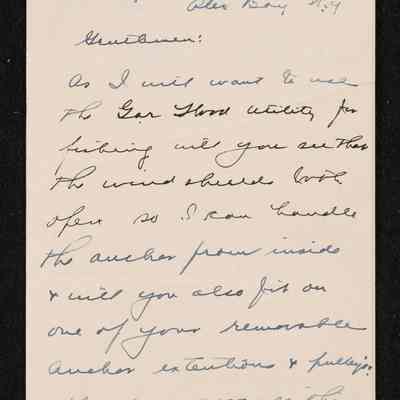 Alex Bay N.Y
Gentlemen:
As I will want to use
the Gar Wood utility for
fishing will you see that
the wind shields both
open so I can handle
the anchor from inside
& will you also fix on
one of your removable
anchor extentions & pulleys.